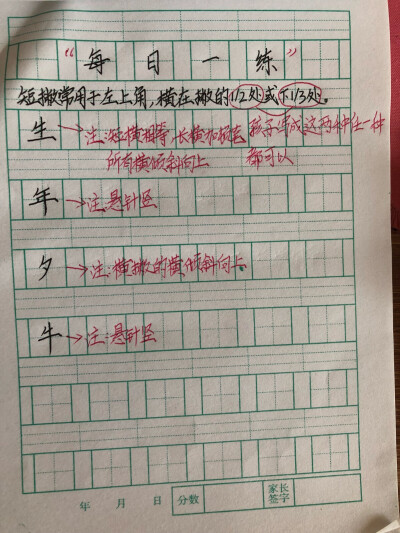 “每日一练”
短撇常用于左上角,横在撇的1/2处或下1/3处。
生→注:短横相等,长横加
孩子写成这两种任一种
所有横倾斜向上
都可以
年→注:悬针竖
夕→注:横撇的横倾斜向上。
牛→注:悬针竖
年 月 日 分数 家长签字